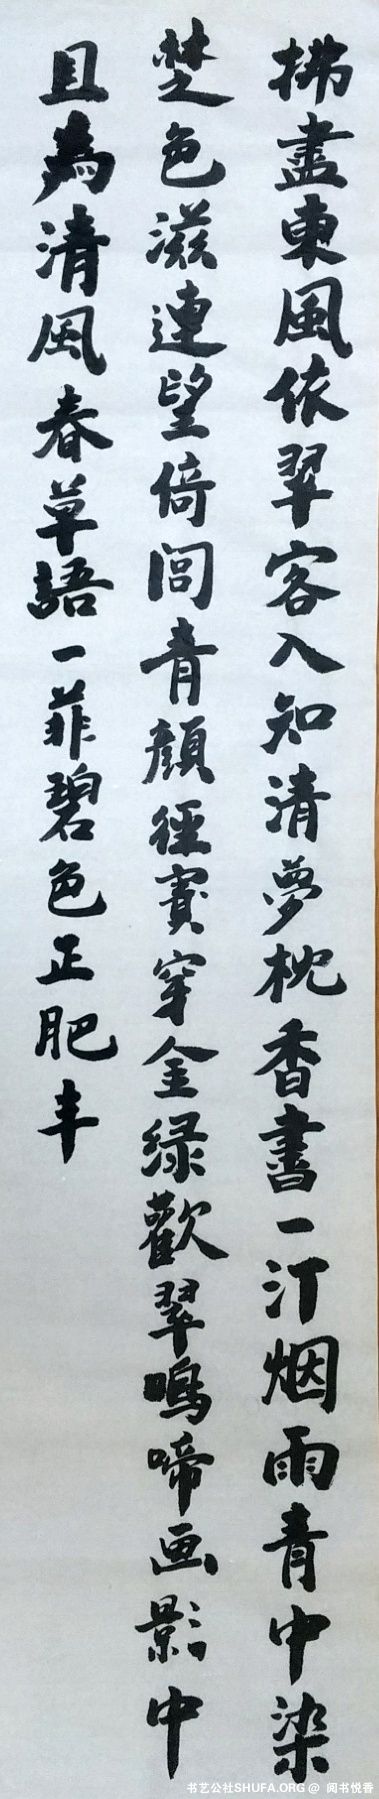 拂盡東風依翠客入知清夢枕香書一汀烟雨青中染
楚色滋連望倚閭青顏徑賓穿金綠歡翠鳴啼画影中
且為清風春草語一菲碧色正肥丰
书艺公社SHUFA.ORG @ 阅书悦香